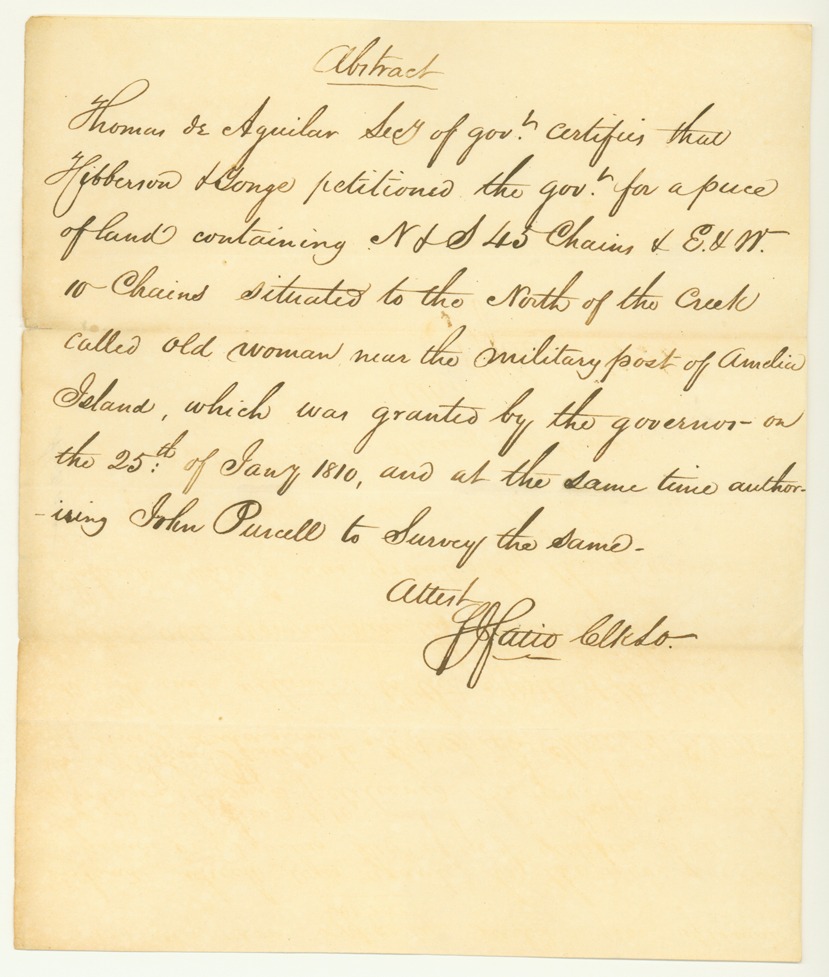 Abstract
Thomas de Aguilar Secy of govt. certifies that
Hibberson & Yonge petitioned the govt. for a piece
of land containing N & S 45 Chains & E. & W.
10 Chains situated to the North of the Creek
called old woman near the military post of Amelia
Island, which was granted by the governor on
the 25th of Jany 1810, and at the same time author-
-ising John Purcell to Survey the same -
Attest
Fatio Clk So.